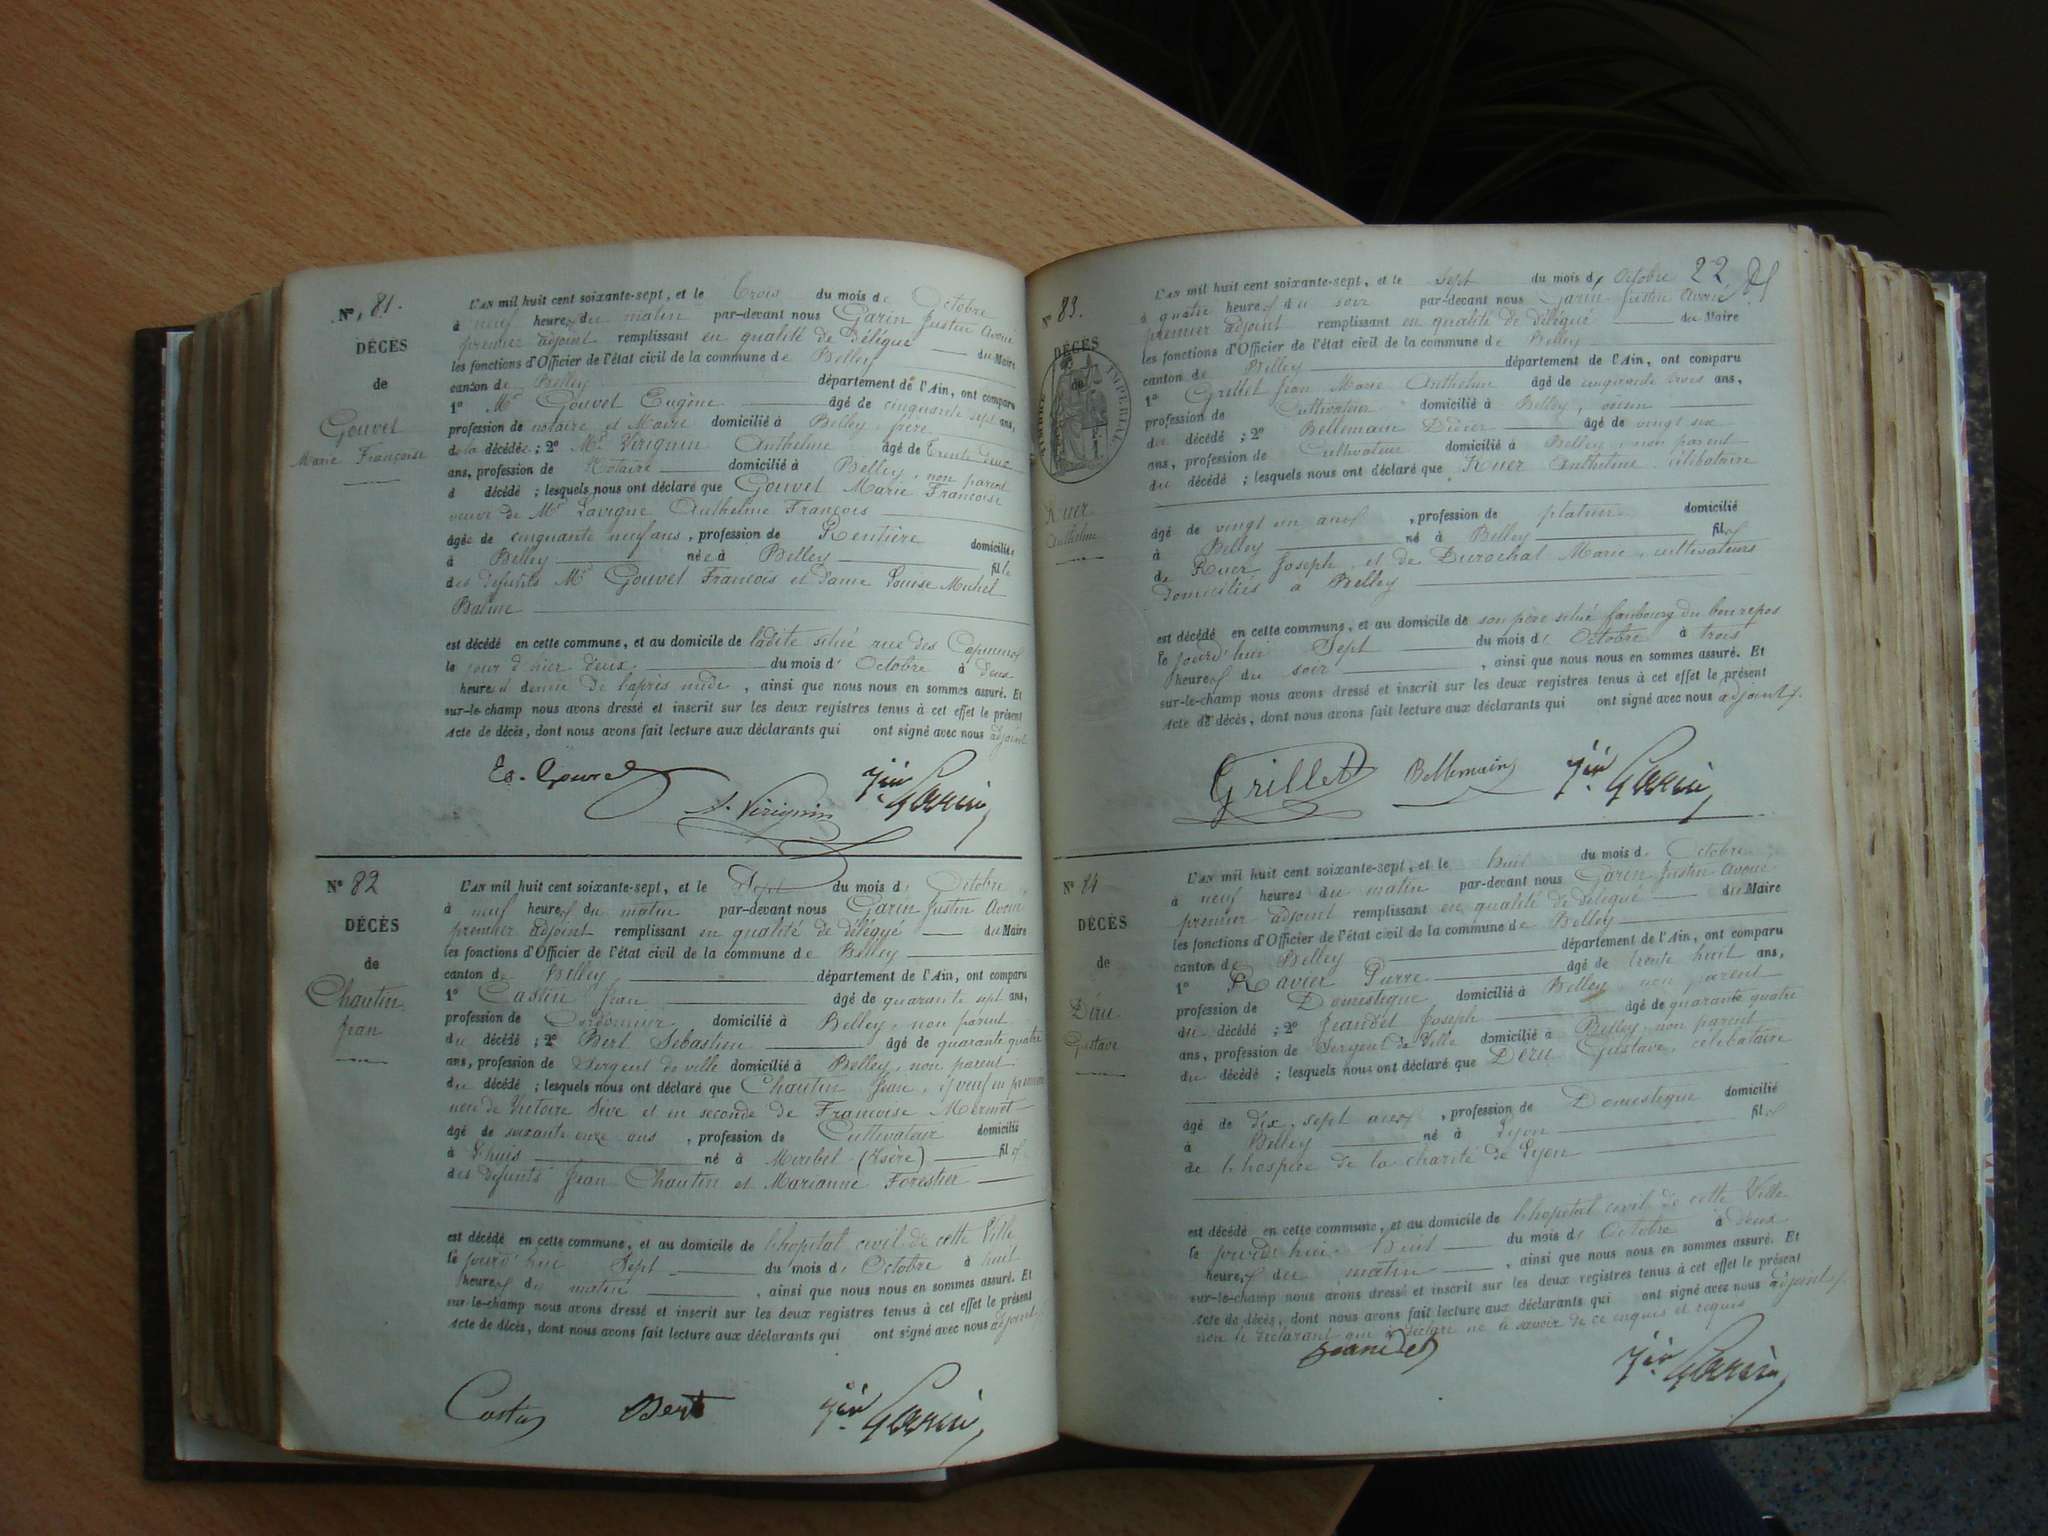 N°. 81.
DÉCÈS
de
Gouvet
Marie Françoise
L'AN mil huit cent soixante-sept, et le trois du mois de Octobre
à neuf heures du matin par-devant nous Garin Justin Avoué
premier adjoint remplissant en qualité de Délégué du Maire
les fonctions d'Officier de l'état civil de la commune de Belley
canton de Belley département de l'Ain, ont comparu
1° Mr Gouvet Eugène âgé de cinquante sept ans,
profession de notaire et Maire domicilié à Belley, frère
de la décédée ; 2° Mr Virignin Anthelme âgé de trente deux
ans, profession de Notaire domicilié à Belley, non parent
d décédé ; lesquels nous ont déclaré que Gouvet Marie Françoise
veuve de Mr Lavigne Anthelme François
âgée de cinquante neuf ans, profession de Rentière domiciliée
à Belley née à Belley fille
des défunts Mr Gouvet François et Dame Louise Michel
Balme
est décédé en cette commune, et au domicile de ladite situé rue des Capucins
le jour d'hier deux du mois d' Octobre à deux
heures et demie de l'après midi, ainsi que nous nous en sommes assuré. Et
sur-le-champ nous avons dressé et inscrit sur les deux registres tenus à cet effet le présent
acte de décès, dont nous avons fait lecture aux déclarants qui ont signé avec nous adjoint
Es. Gouvet
A. Virignin
Jin Garin
N° 82
DÉCÈS
de
Chautin
Jean
L'AN mil huit cent soixante-sept, et le Sept du mois d' Octobre
à neuf heures du matin par-devant nous Garin Justin Avoué
premier adjoint remplissant en qualité de délégué du Maire
les fonctions d'Officier de l'état civil de la commune de Belley
canton de Belley département de l'Ain, ont comparu
1° Castin Jean âgé de quarante sept ans,
profession de Cordonnier domicilié à Belley, non parent
du décédé ; 2° Bert Sébastien âgé de quarante quatre
ans, profession de Sergent de ville domicilié à Belley, non parent
du décédé ; lesquels nous ont déclaré que Chautin Jean, veuf en premières
noces de Victoire Sève et en seconde de Françoise Mermet
âgé de soixante onze ans, profession de Cultivateur domicilié
à Lhuis né à Miribel (Isère) fils
des défunts Jean Chautin et Marianne Forestier
est décédé en cette commune, et au domicile de l'hopital civil de cette Ville
le jourd'hui Sept du mois d' Octobre à huit
heures du matin, ainsi que nous nous en sommes assuré. Et
sur-le-champ nous avons dressé et inscrit sur les deux registres tenus à cet effet le présent
acte de décès, dont nous avons fait lecture aux déclarants qui ont signé avec nous adjoint
Castin Bert Jin Garin
22
N° 83.
DÉCÈS
de
TIMBRE IMPÉRIAL
Ruer
Anthelme
L'AN mil huit cent soixante-sept, et le Sept du mois d' Octobre
à quatre heures du soir par-devant nous Garin Justin Avoué
premier adjoint remplissant en qualité de délégué du Maire
les fonctions d'Officier de l'état civil de la commune de Belley
canton de Belley département de l'Ain, ont comparu
1° Grillet Jean Marie Anthelme âgé de cinquante trois ans,
profession de Cultivateur domicilié à Belley, voisin
du décédé ; 2° Bellemain Didier âgé de vingt six
ans, profession de Cultivateur domicilié à Belley, non parent
du décédé ; lesquels nous ont déclaré que Ruer Anthelme célibataire
âgé de vingt un ans, profession de platrier domicilié
à Belley né à Belley fils
de Ruer Joseph, et de Durochat Marie, cultivateurs
domiciliés à Belley
est décédé en cette commune, et au domicile de son père situé faubourg du bon repos
le jourd'hui Sept du mois d' Octobre à trois
heures du soir, ainsi que nous nous en sommes assuré. Et
sur-le-champ nous avons dressé et inscrit sur les deux registres tenus à cet effet le présent
acte de décès, dont nous avons fait lecture aux déclarants qui ont signé avec nous adjoint.
Grillet Bellemain Jin Garin
N° 84
DÉCÈS
de
Déru
Gustave
L'AN mil huit cent soixante-sept, et le huit du mois d' Octobre
à neuf heures du matin par-devant nous Garin Justin Avoué
premier adjoint remplissant en qualité de délégué du Maire
les fonctions d'Officier de l'état civil de la commune de Belley
canton de Belley département de l'Ain, ont comparu
1° Ravier Pierre âgé de trente huit ans,
profession de Domestique domicilié à Belley, non parent
du décédé ; 2° Jeandet Joseph âgé de quarante quatre
ans, profession de Sergent de Ville domicilié à Belley, non parent
du décédé ; lesquels nous ont déclaré que Déru Gustave, célibataire
âgé de dix sept ans, profession de Domestique domicilié
à Belley né à Lyon fils
de l'hospice de la charité de Lyon
est décédé en cette commune, et au domicile de l'hopital civil de cette Ville
le jourd'hui huit du mois d' Octobre à deux
heures du matin, ainsi que nous nous en sommes assuré. Et
sur-le-champ nous avons dressé et inscrit sur les deux registres tenus à cet effet le présent
acte de décès, dont nous avons fait lecture aux déclarants qui ont signé avec nous adjoint
non le déclarant qui a déclaré ne le savoir de ce enquis et requis
Jeandet Jin Garin